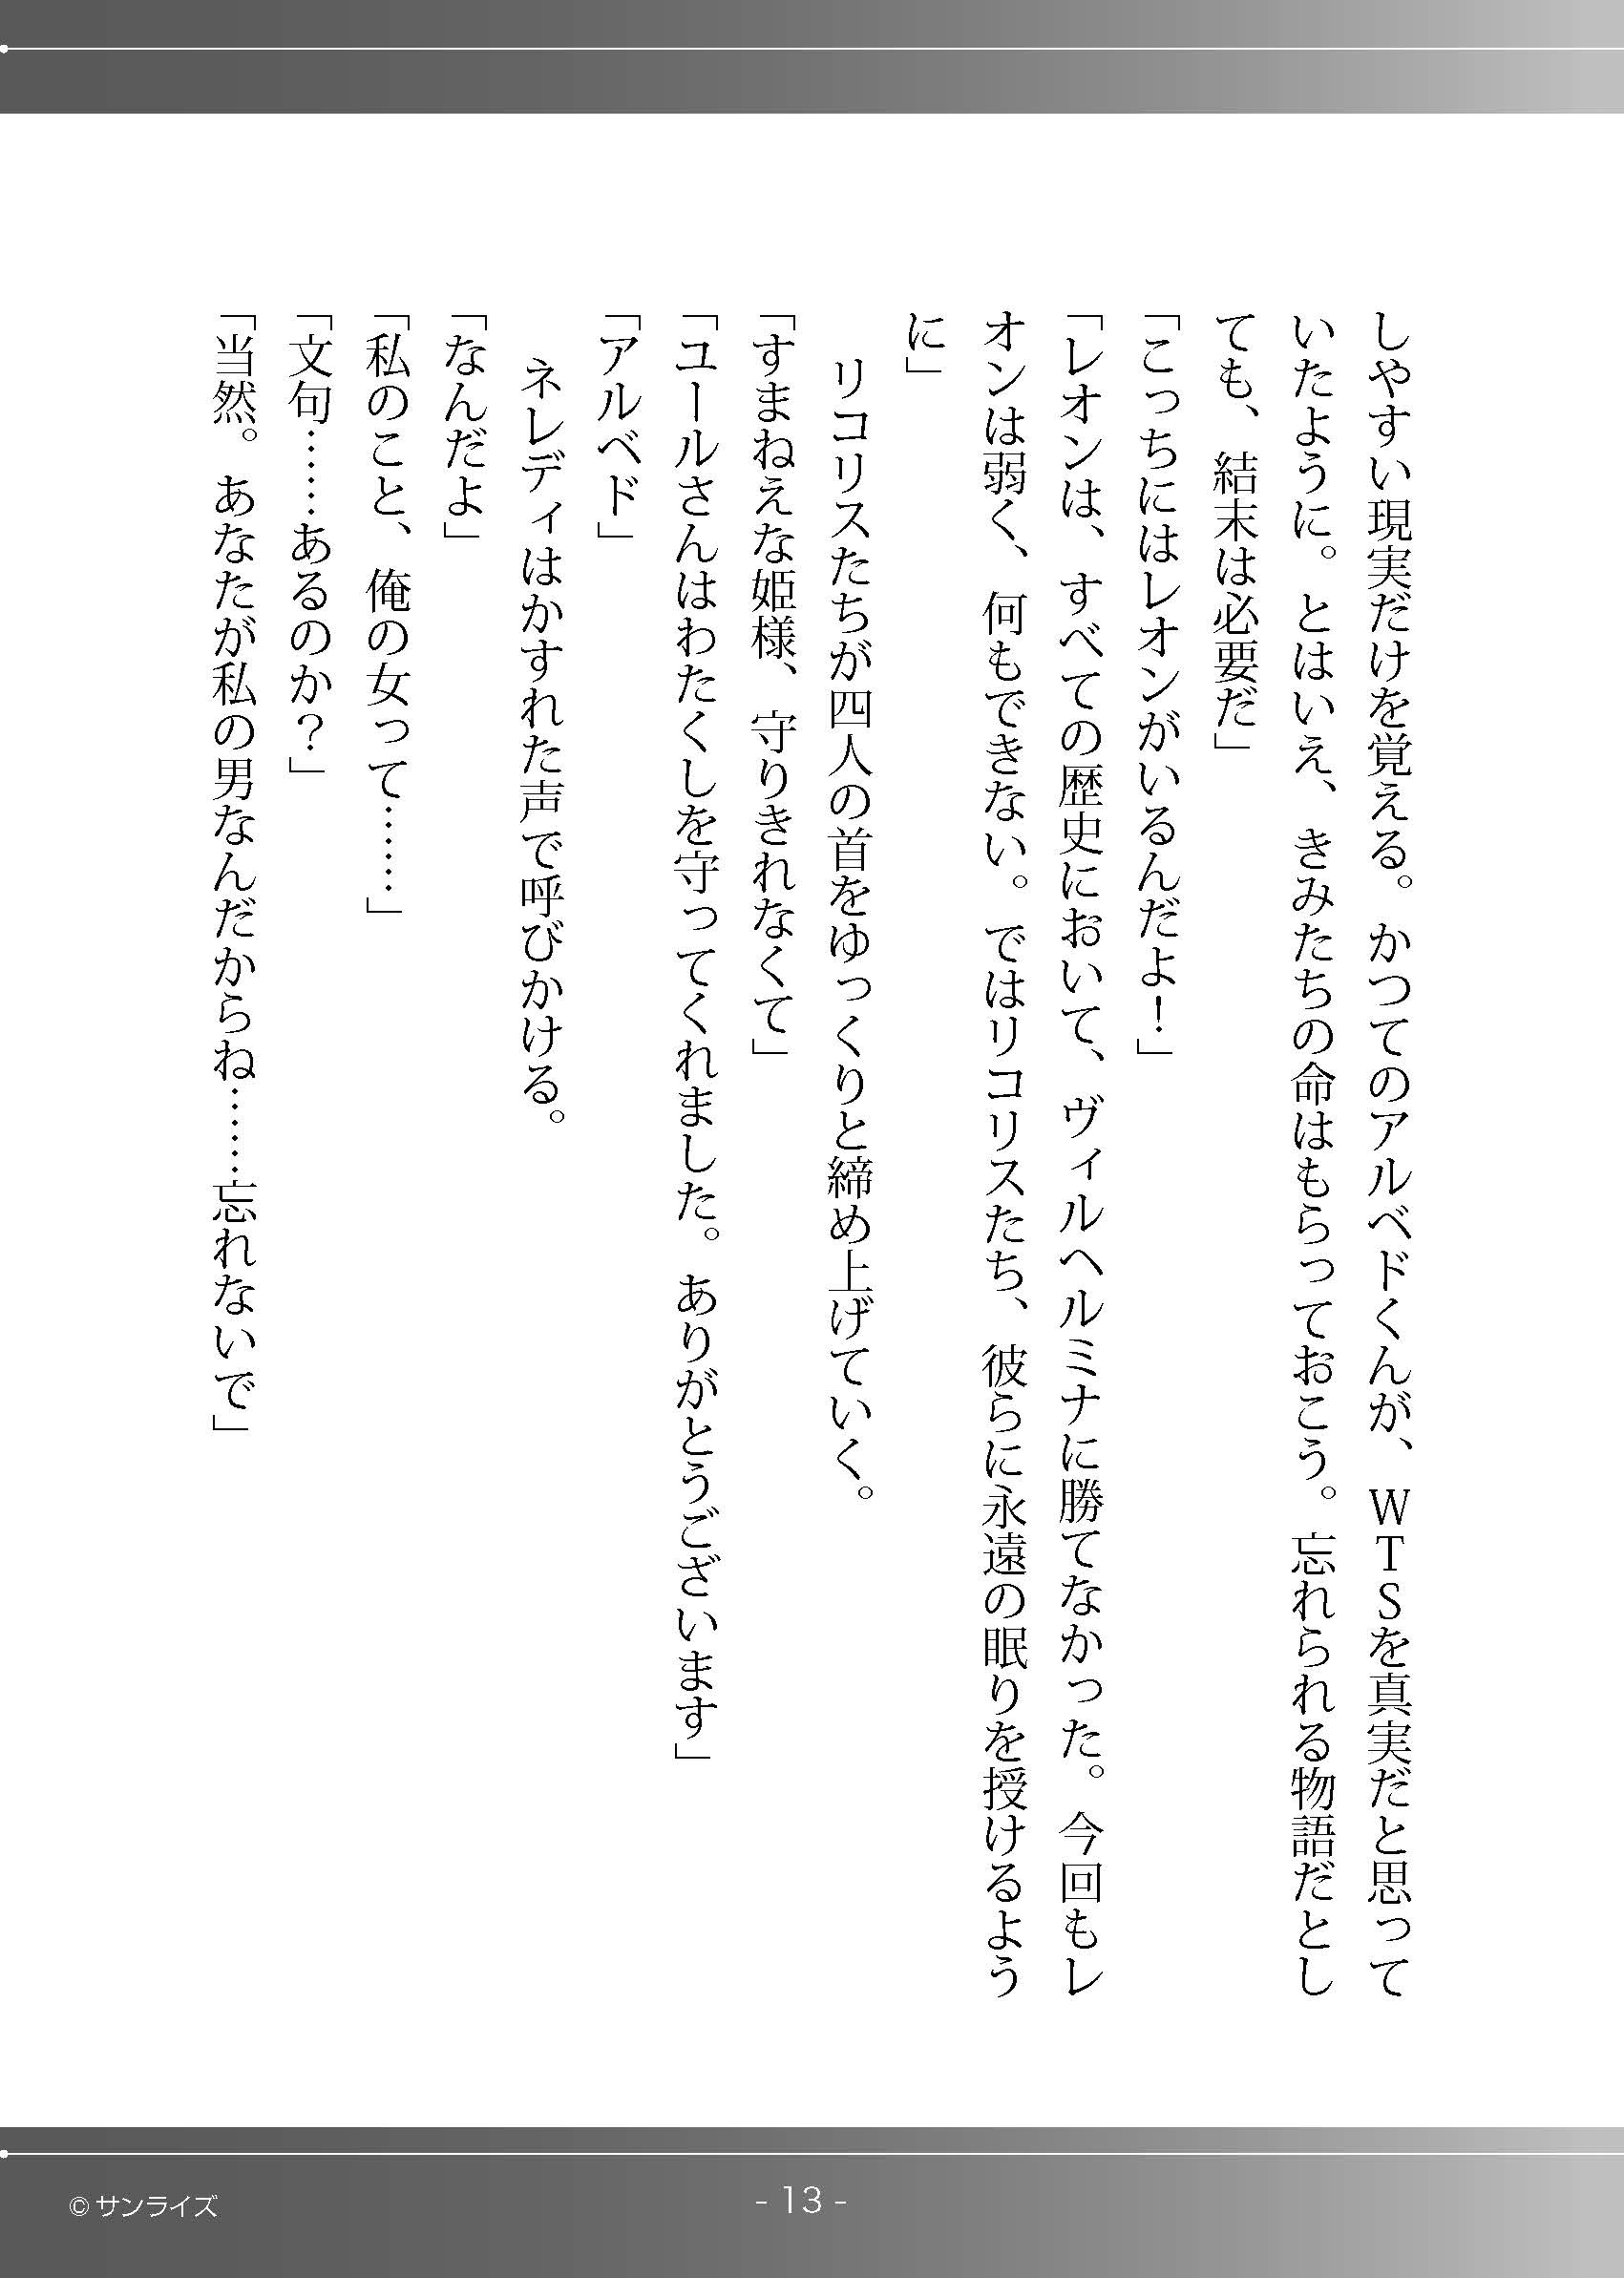 しやすい現実だけを覚える。かつてのアルベドくんが、ＷＴＳを真実だと思って
いたように。とはいえ、きみたちの命はもらっておこう。忘れられる物語だとし
ても、結末は必要だ」
「こっちにはレオンがいるんだよ！」
「レオンは、すべての歴史において、ヴィルヘルミナに勝てなかった。今回もレ
オンは弱く、何もできない。ではリコリスたち、彼らに永遠の眠りを授けるよう
に」
　リコリスたちが四人の首をゆっくりと締め上げていく。
「すまねえな姫様、守りきれなくて」
「ユールさんはわたくしを守ってくれました。ありがとうございます」
「アルベド」
　ネレディはかすれた声で呼びかける。
「なんだよ」
「私のこと、俺の女って……」
「文句……あるのか？」
「当然。あなたが私の男なんだからね……忘れないで」
© サンライズ
- 13 -